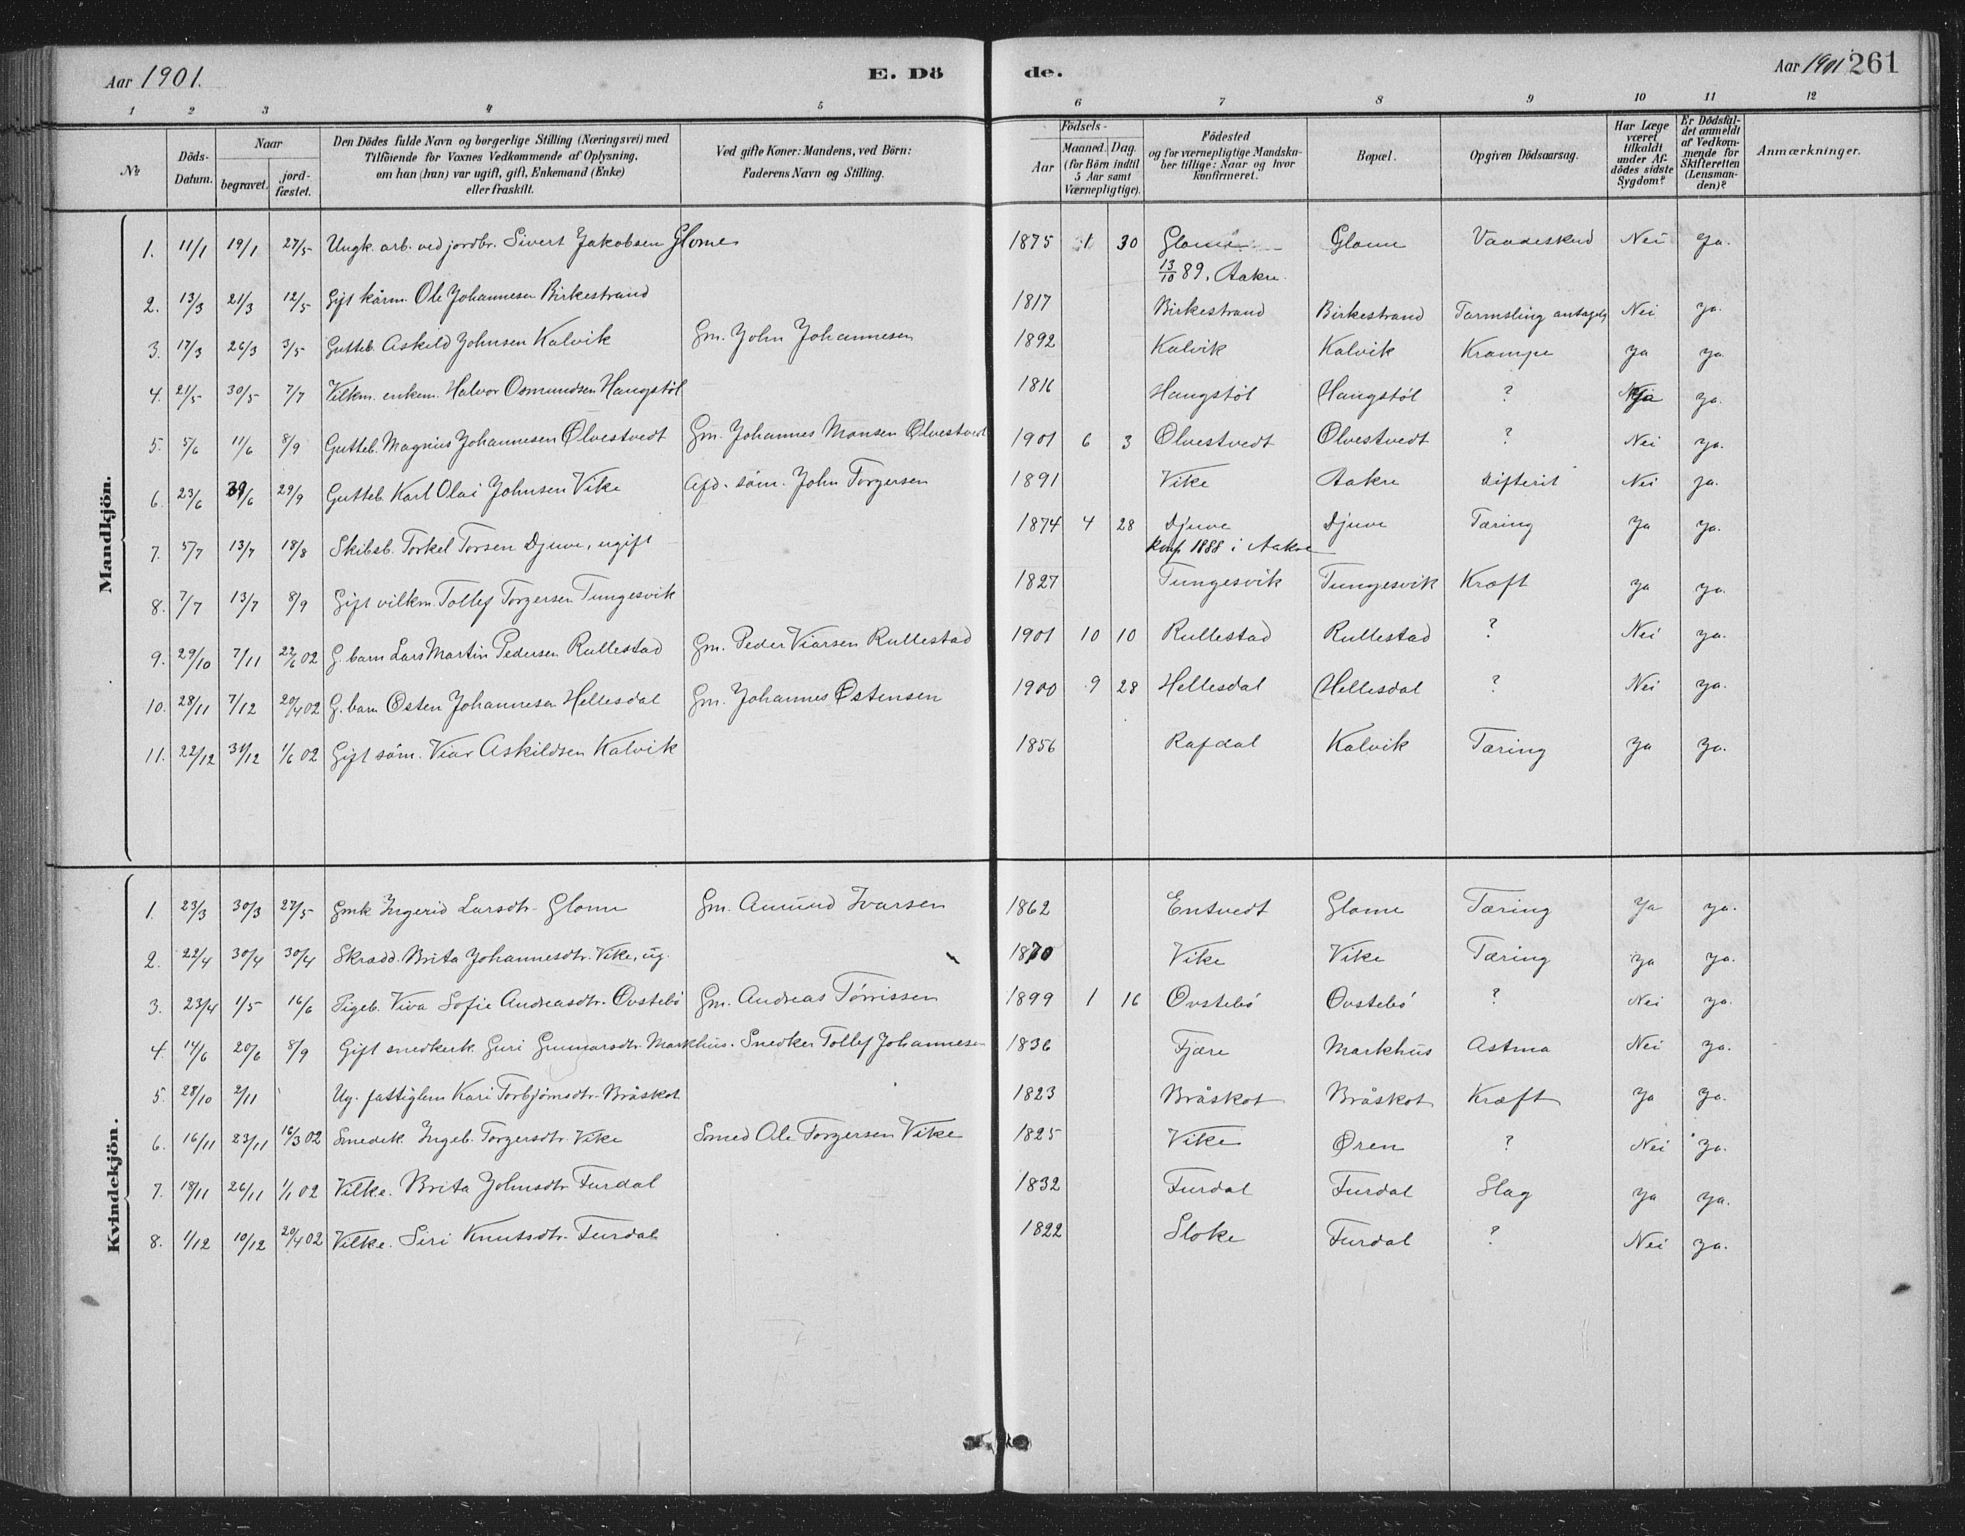 Aar 1901. E. Dö de. Aar 1901 261
1 2 3 4 5 6 7 8 9 10 11 12
№ Döds-Datum. Naar begravet. jord-fæstet. Den Dödes fulde Navn og borgerlige Stilling (Næringsvei) med Tilföiende for Voxnes Vedkommende af Oplysning, om han (hun) var ugift, gift, Enkemand (Enke) eller fraskilt. Ved gifte Koner: Mandens, ved Börn: Faderens Navn og Stilling. Födsels- Aar Maaned. Dag. (for Börn indtil 5 Aar samt Værnepligtige). Födested og for værnepligtige Mandska-ber tillige: Naar og hvor konfirmeret. Bopæl. Opgiven Dödsaarsag. Har Læge været tilkaldt under Af-dödes sidste Sygdom? Er Dödsfal-det anmeldt af Vedkom-mende for Skifteretten (Lensman-den)? Anmærkninger.
Mandkjön.
1. 11/1 19/1 27/5 Ungk. arb. ved jordbr. Sivert Jakobsen Glome 1875 1 30 Glome Glome Vaadeskud Nei Ja.
13/10 89. Aakre.
2. 13/3 21/3 12/5 Gift kårm. Ole Johannesen Birkestrand 1817 Birkestrand Birkestrand Tarmsling antagelig Nei Ja.
3. 17/3 26/3 3/5 Gutteb. Askild Johnsen Kalvik Gm. John Johannesen 1892 Kalvik Kalvik Krampe Ja Ja.
4. 21/5 30/5 7/7 Vilkm. enkem. Halvor Osmundsen Haugstöl 1816 Haugstöl Haugstöl ? Ja Ja.
5. 5/6 11/6 8/9 Gutteb. Magnus Johannesen Ølvestvedt Gm. Johannes Monsen Ølvestvedt 1901 6 3 Ølvestvedt Ølvestvedt ? Nei Ja.
6. 23/6 29/6 29/9 Gutteb. Karl Olai Johnsen Vike Afd. söm. John Torgersen 1891 Vike Aakre Difterit Nei Ja.
7. 5/7 13/7 18/8 Skibsb. Torkel Torsen Djuve, ugift 1874 4 28 Djuve Djuve Tæring Ja Ja.
konf. 1888 i Aakre
8. 7/7 13/7 8/9 Gift vilkm. Tollef Torgersen Tungesvik 1827 Tungesvik Tungesvik Kræft Ja Ja.
9. 29/10 7/11 22/6 02 G. barn Lars Martin Pedersen Rullestad Gm. Peder Viarsen Rullestad 1901 10 10 Rullestad Rullestad ? Nei Ja.
10. 28/11 7/12 20/4 02 G. barn Østen Johannesen Hellesdal Gm. Johannes Østensen 1900 9 28 Hellesdal Hellesdal ? Nei Ja.
11. 22/12 31/12 1/6 02 Gift söm. Viar Askildsen Kalvik 1856 Rafdal Kalvik Tæring Ja Ja.
Kvindekjön.
1. 23/3 30/3 27/5 Gmk Ingerid Larsdtr. Glome Gm. Amund Ivarsen 1862 Entvedt Glome Tæring Ja Ja.
2. 22/4 30/4 30/4 Skradd. Brita Johannesdtr. Vike, ug. 1870 Vike Vike Tæring Ja Ja.
3. 23/4 1/5 16/6 Pigeb. Viva Sofie Andreasdtr. Ovstebö Gm. Andreas Törrissen 1899 1 16 Ovstebö Ovstebö ? Nei Ja.
4. 14/6 20/6 8/9 Gift snedkerk. Guri Gunnarsdtr. Markhus. Snedker Tollef Johannesen 1836 Fjære Markhus Astma Nei Ja.
5. 28/10 2/11 Ug. fattiglem Kari Torbjörnsdtr. Bråskot 1823 Bråskot Bråskot Kræft Ja Ja.
6. 16/11 23/11 16/3 02 Smedek. Ingeb. Torgersdtr. Vike Smed Ole Torgersen Vike 1825 Vike Øren ? Nei Ja.
7. 18/11 26/11 1/1 02 Vilke. Brita Johnsdtr. Furdal 1832 Furdal Furdal Slag Ja Ja.
8. 1/12 10/12 20/4 02 Vilke. Siri Knutsdtr. Furdal 1822 Sloke Furdal ? Nei Ja.